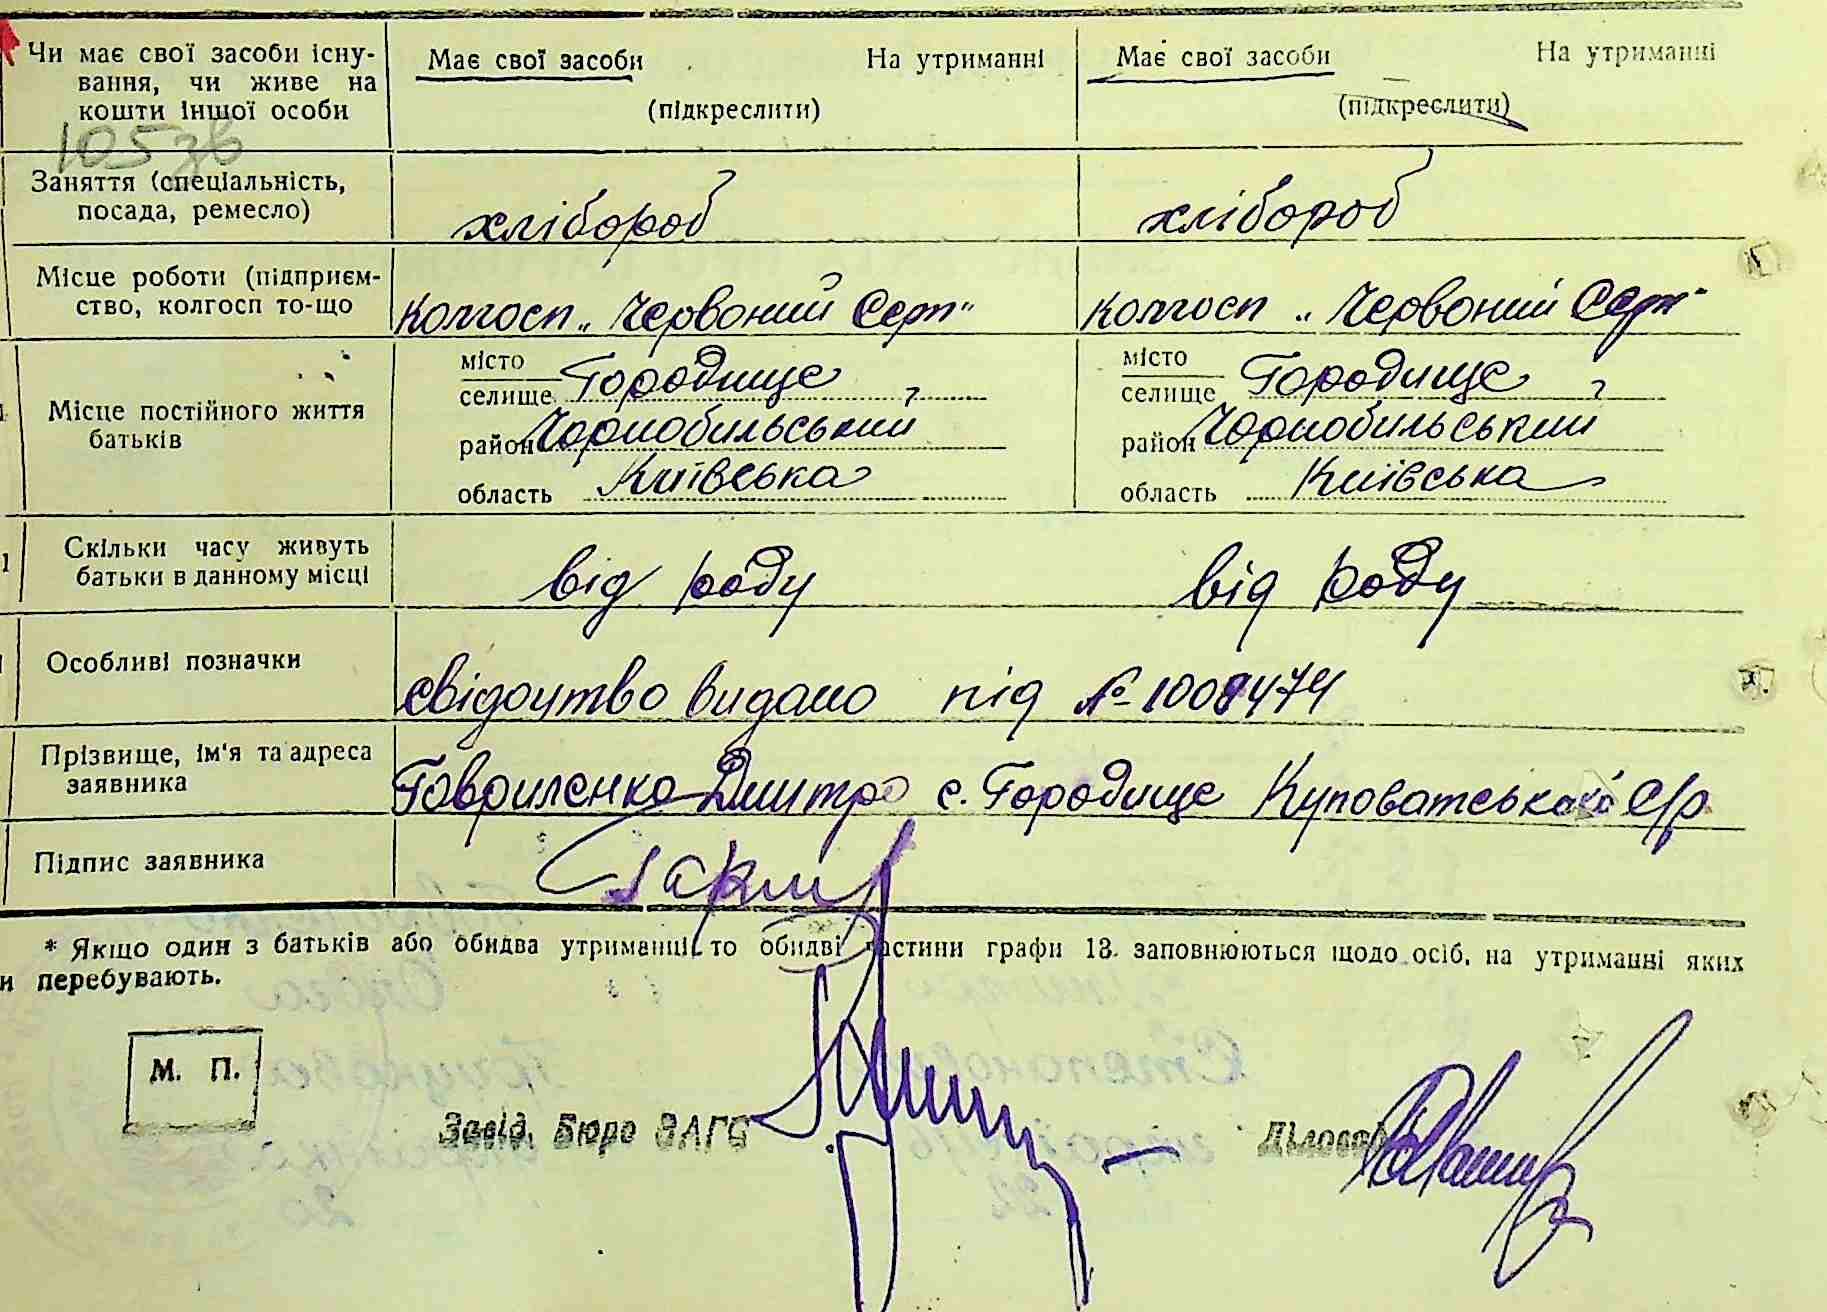 Чи має свої засоби існу-
вання, чи живе на
кошти іншої особи
Має свої засоби На утриманні
(підкреслити)
Має свої засоби На утриманні
(підкреслити)
105 зв
Заняття (спеціальність,
посада, ремесло)
хлібороб
хлібороб
Місце роботи (підприєм-
ство, колгосп то-що
колгосп „Червоний Серп"
колгосп „Червоний Серп"
Місце постійного життя
батьків
місто
селище Городище
район Чорнобильський
область Київська
місто
селище Городище
район Чорнобильський
область Київська
Скільки часу живуть
батьки в данному місці
від роду
від роду
Особливі позначки
свідоцтво видано під № 1008474
Прізвище, ім'я та адреса
заявника
Гавриленко Дмитро с. Городище Куповатської с/р
Підпис заявника
* Якщо один з батьків або обидва утриманці то обидві частини графи 13. заповнюються щодо осіб, на утриманні яких
и перебувають.
М. П.
Завід. Бюро ЗАГС
Діловод